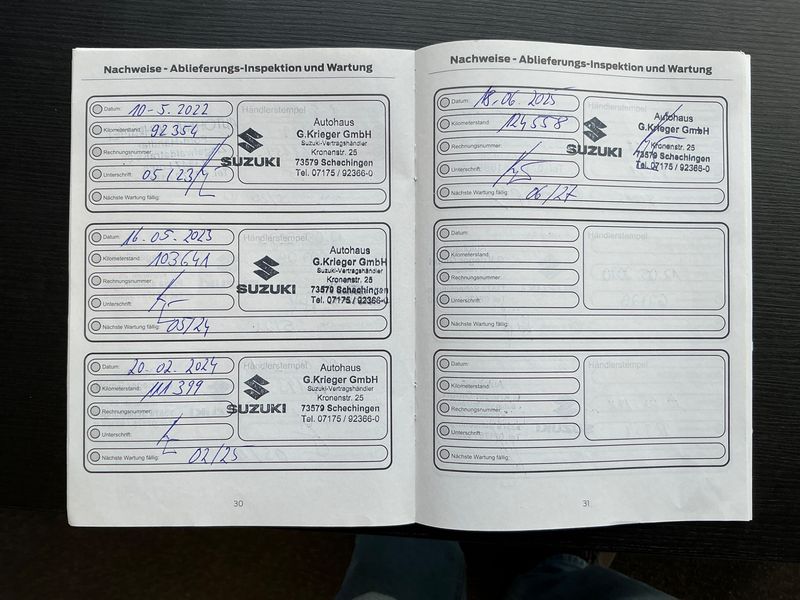 Nachweise - Ablieferungs-Inspektion und Wartung
Datum: 10-5.2022
Händlerstempel
Kilometerstand: 92354
Rechnungsnummer:
Unterschrift: 05/23
Nächste Wartung fällig:
SUZUKI
Autohaus
G.Krieger GmbH
Suzuki-Vertragshändler
Kronenstr. 25
73579 Schechingen
Tel. 07175 / 92366-0
Datum: 16.05.2023
Händlerstempel
Kilometerstand: 103641
Rechnungsnummer:
Unterschrift:
Nächste Wartung fällig: 05/24
SUZUKI
Autohaus
G.Krieger GmbH
Suzuki-Vertragshändler
Kronenstr. 25
73579 Schechingen
Tel. 07175 / 92366-0
Datum: 20-02.2024
Händlerstempel
Kilometerstand: 111399
Rechnungsnummer:
Unterschrift:
Nächste Wartung fällig: 02/25
SUZUKI
Autohaus
G.Krieger GmbH
Suzuki-Vertragshändler
Kronenstr. 25
73579 Schechingen
Tel. 07175 / 92366-0
30
Nachweise - Ablieferungs-Inspektion und Wartung
Datum: 18.06.2025
Händlerstempel
Kilometerstand: 124558
Rechnungsnummer:
Unterschrift:
Nächste Wartung fällig: 06/27
SUZUKI
Autohaus
G.Krieger GmbH
Kronenstr. 25
73579 Schechingen
Tel. 07175 / 92366-0
Datum:
Händlerstempel
Kilometerstand:
Rechnungsnummer:
Unterschrift:
Nächste Wartung fällig:
Datum:
Händlerstempel
Kilometerstand:
Rechnungsnummer:
Unterschrift:
Nächste Wartung fällig:
31